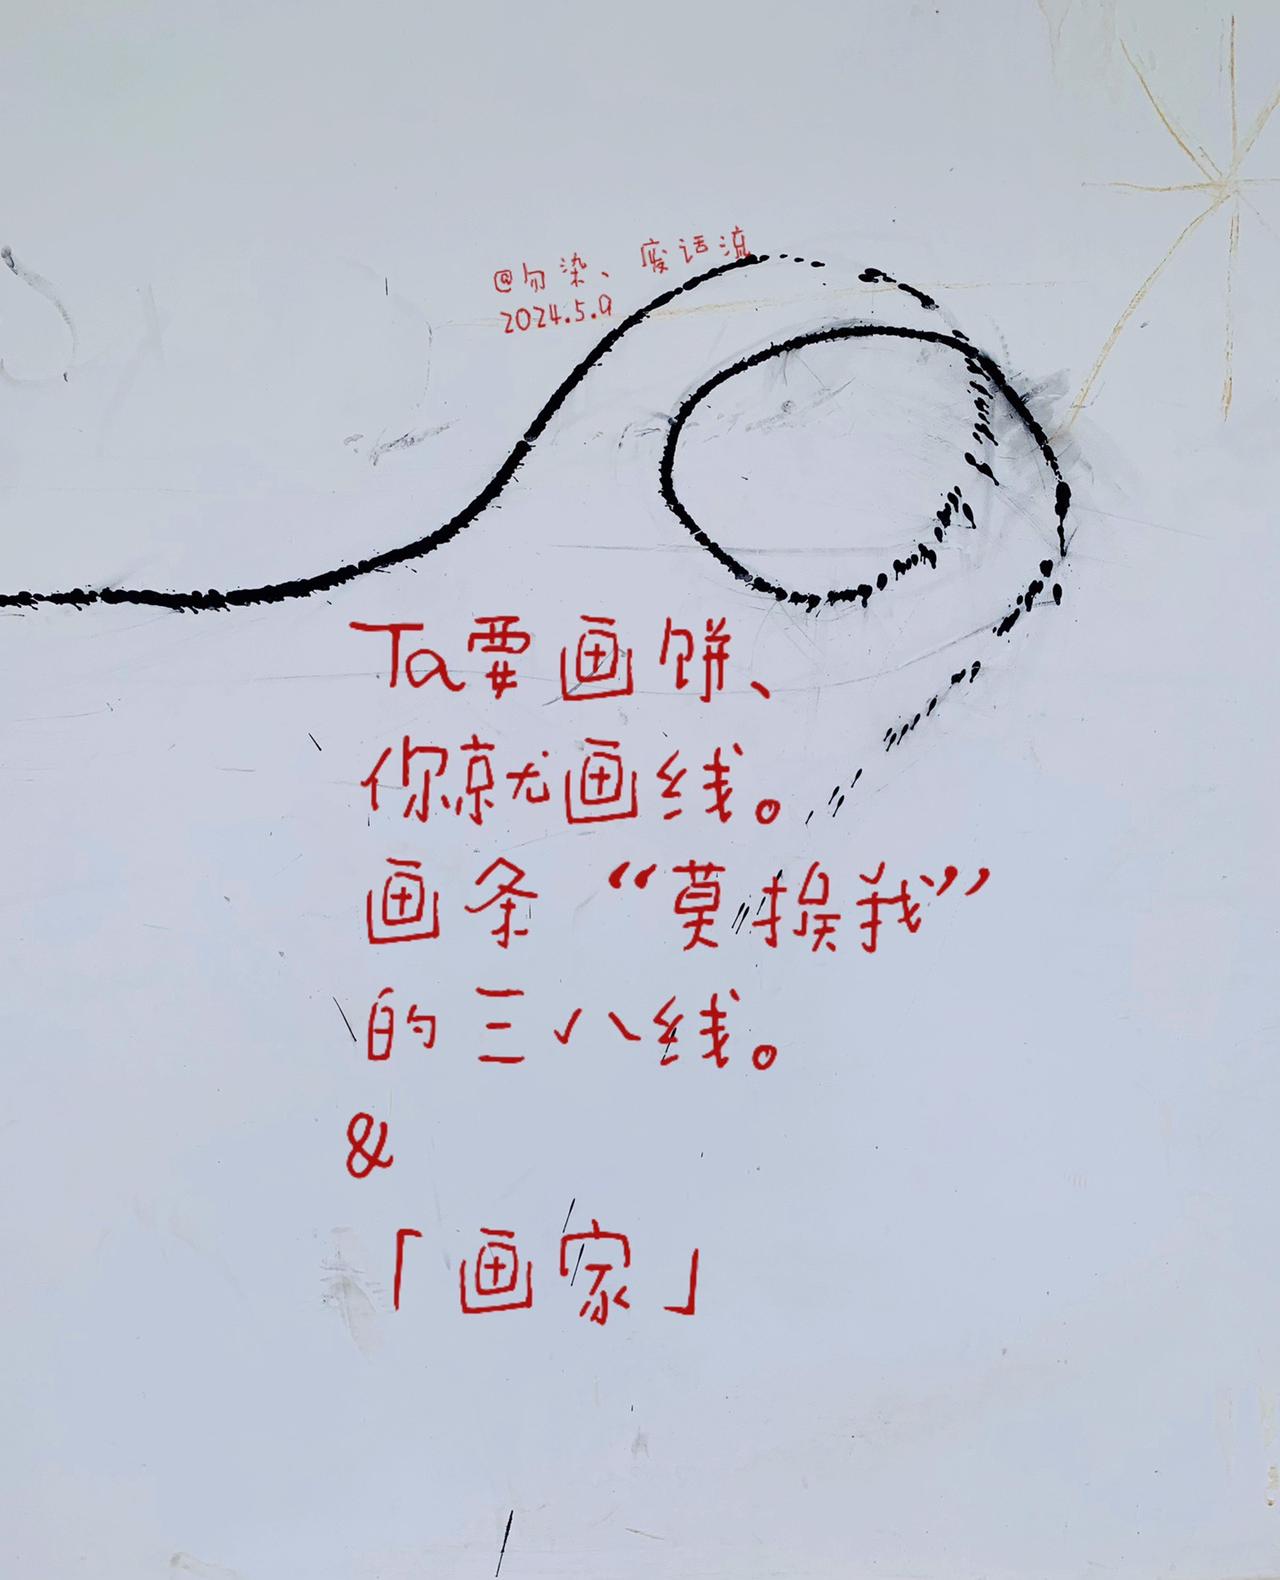 @勿染、废话流
2024.5.9
Ta要画饼、
你就画线。
画条“莫挨我”
的三八线。
&
「画家」